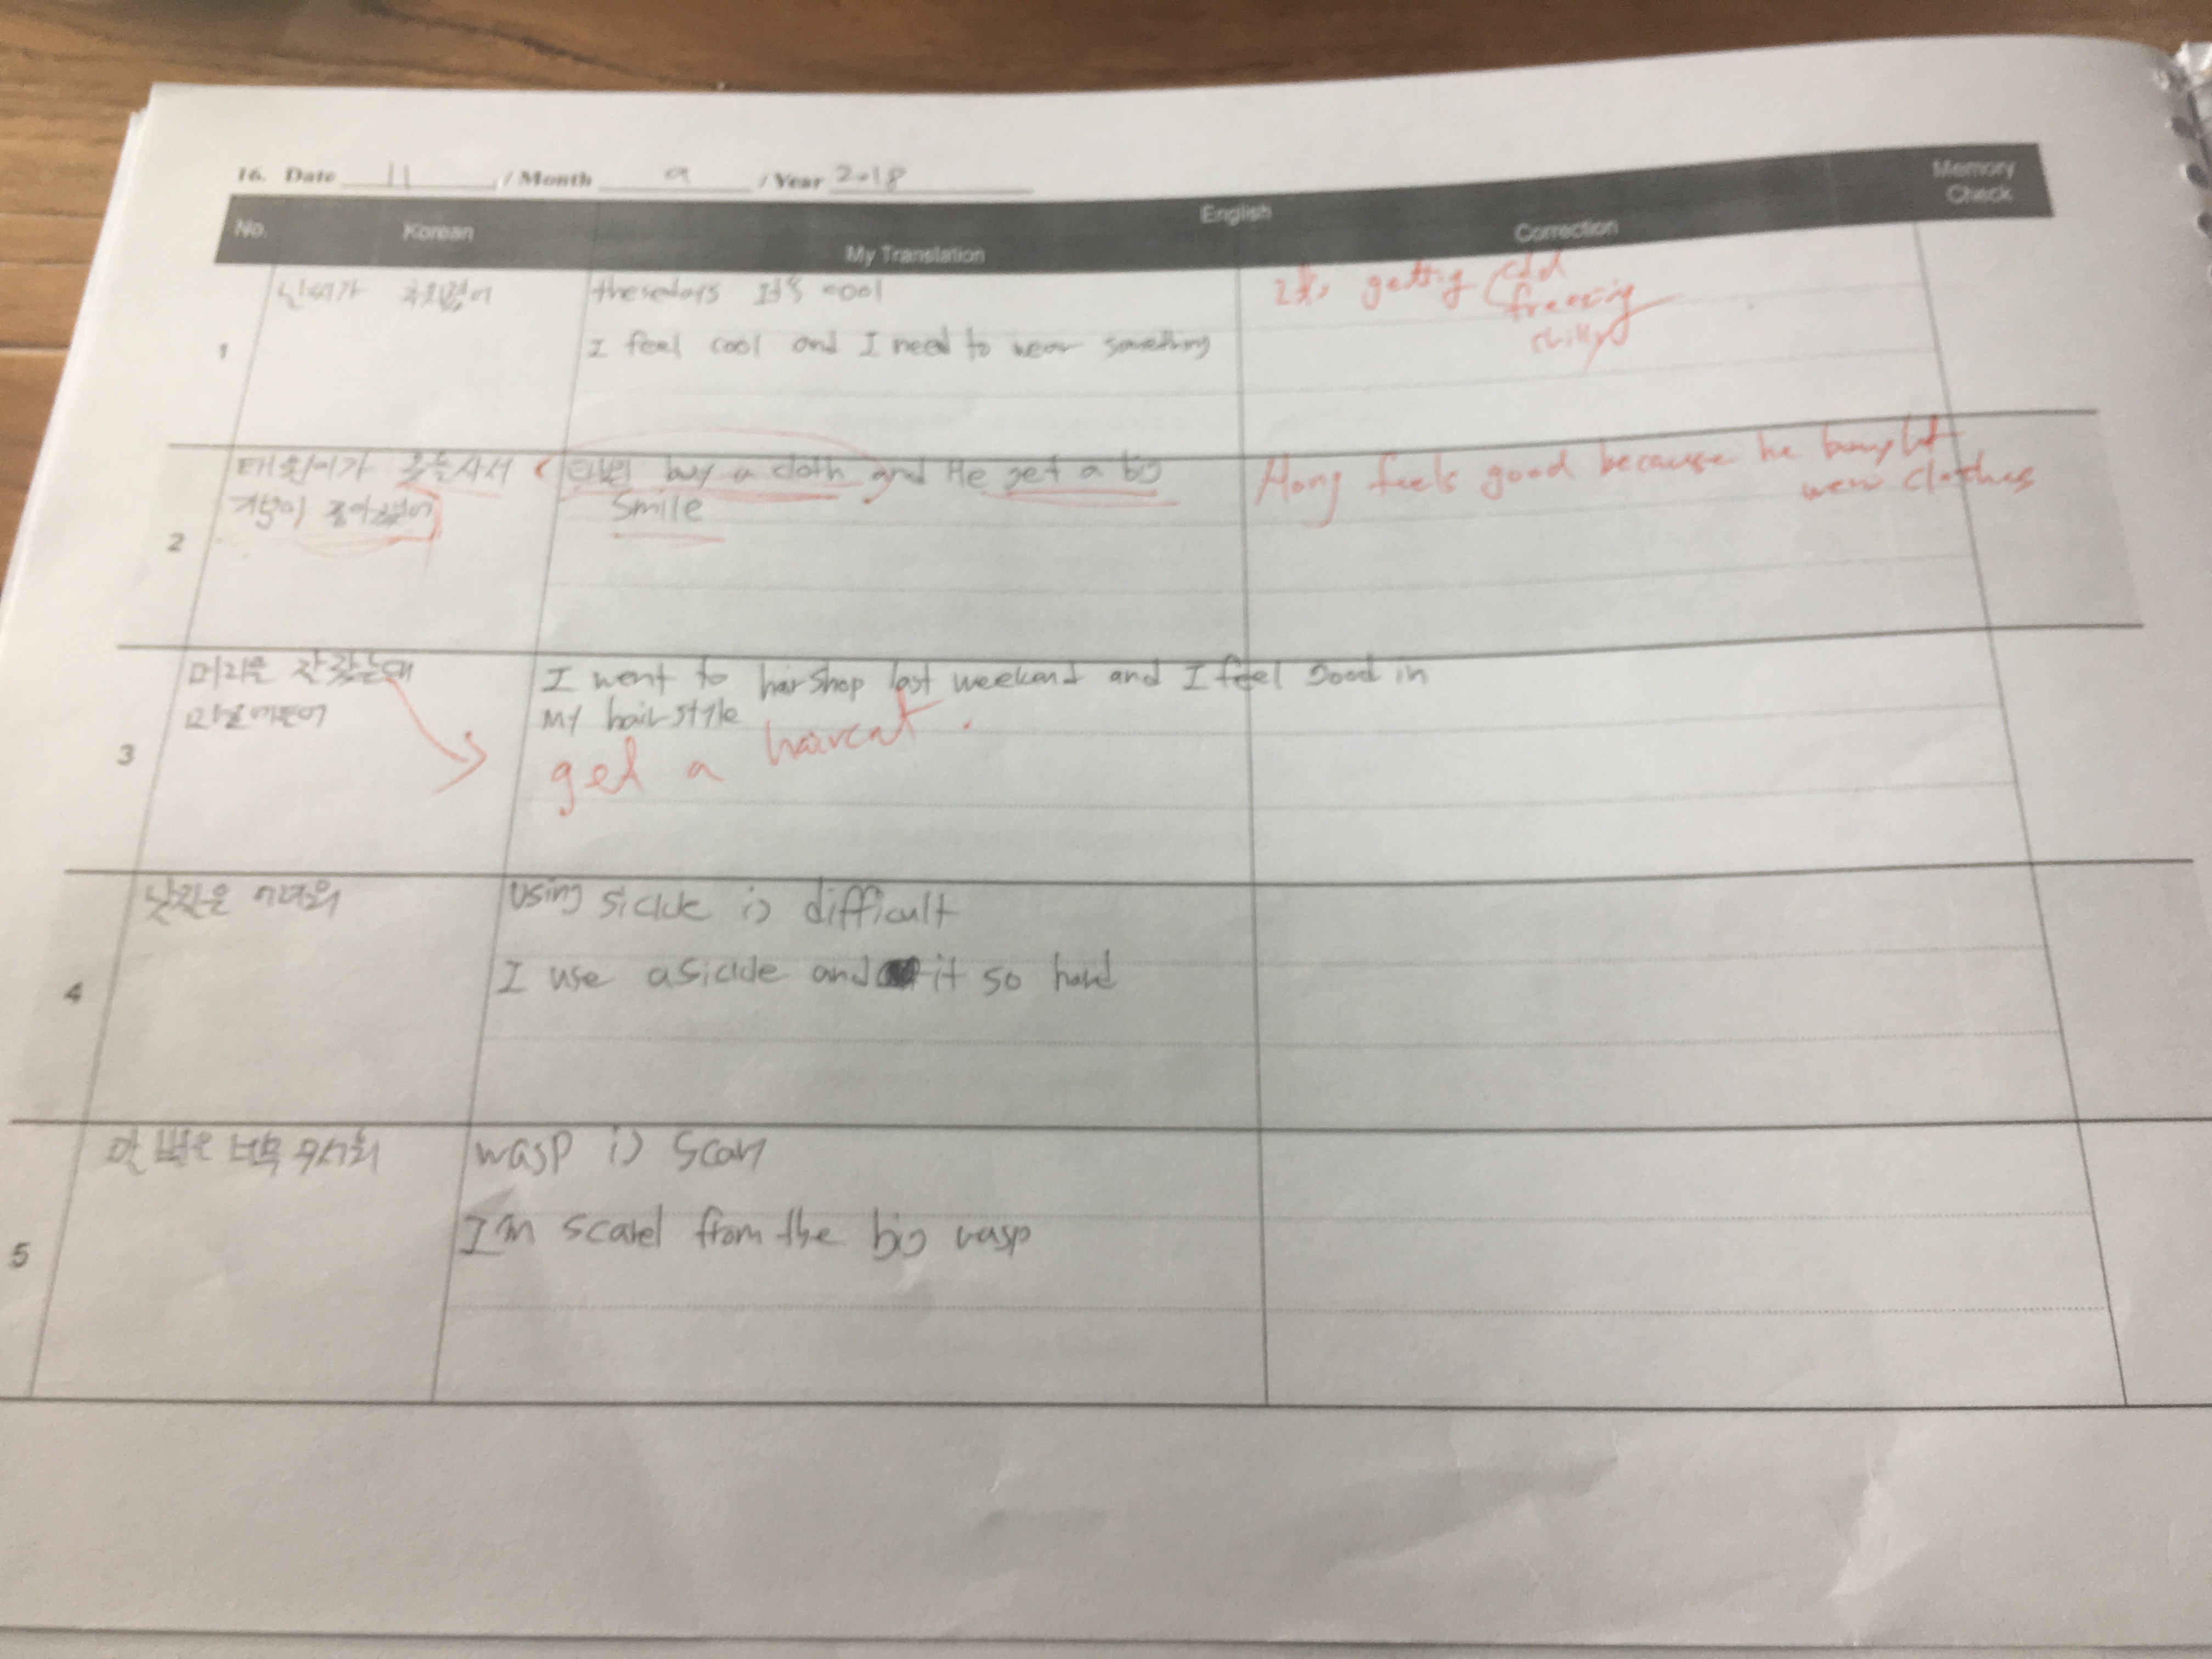 16. Date 11 / Month 9 / Year 2018
No. Korean My Translation English Correction Memory Check
1
날씨가 추워졌어
thesedays It's cool
I feel cool and I need to wear something
getting cold
freezing
chilly
2
옷을 사서
기분이 좋아졌어
buy a cloth and He get a big
smile
Hong feels good because he bought
new clothes
3
머리를 잘랐는데
마음에 들어
I went to hairshop last weekend and I feel good in
My hair style
get a haircut.
4
낫질은 어려워
using sickle is difficult
I use a sickle and it so hard
5
말벌은 너무 무서워
wasp is scary
I'm scared from the big wasp